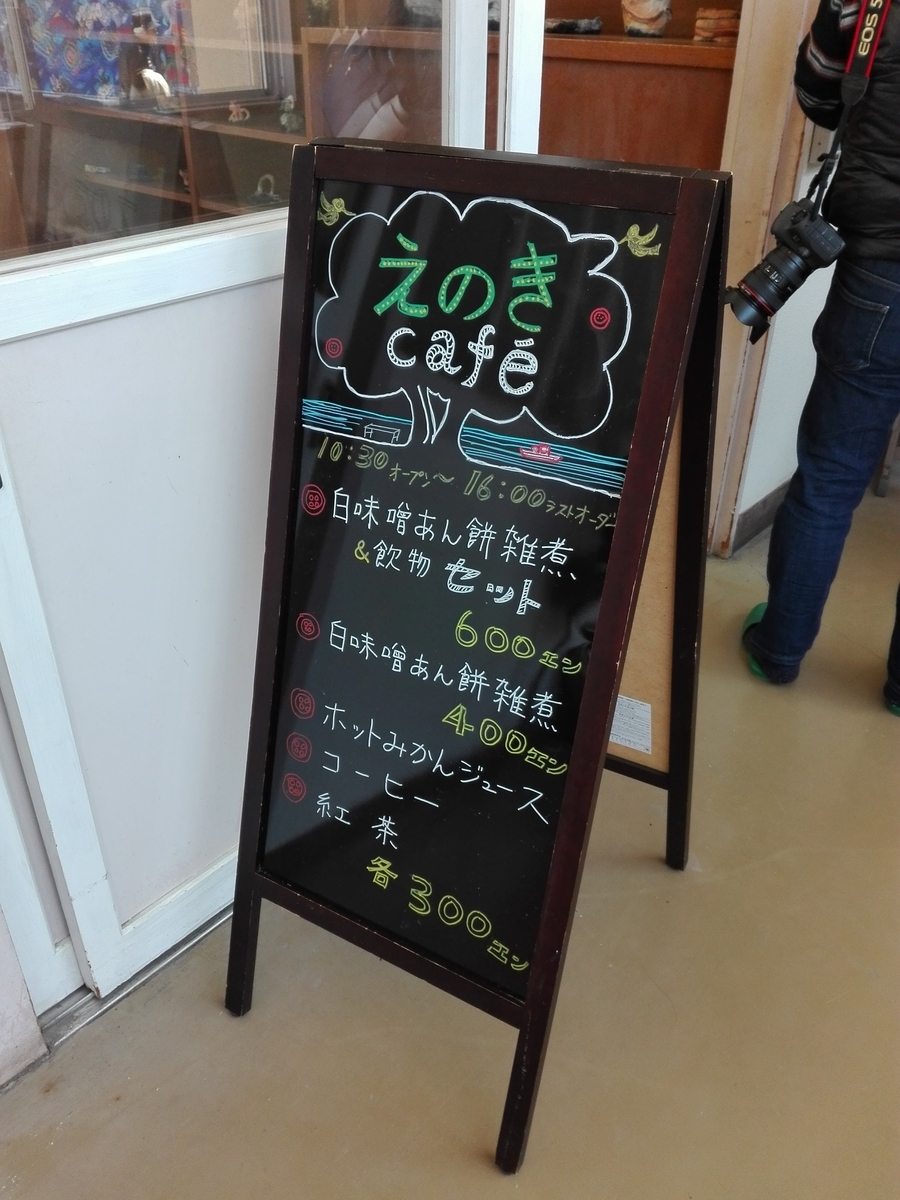 EOS 5
えのき
café
10:30オープン～16:00ラストオーダー
白味噌あん餅雑煮
&飲物セット
600エン
白味噌あん餅雑煮
400エン
ホットみかんジュース
コーヒー
紅茶
各300エン